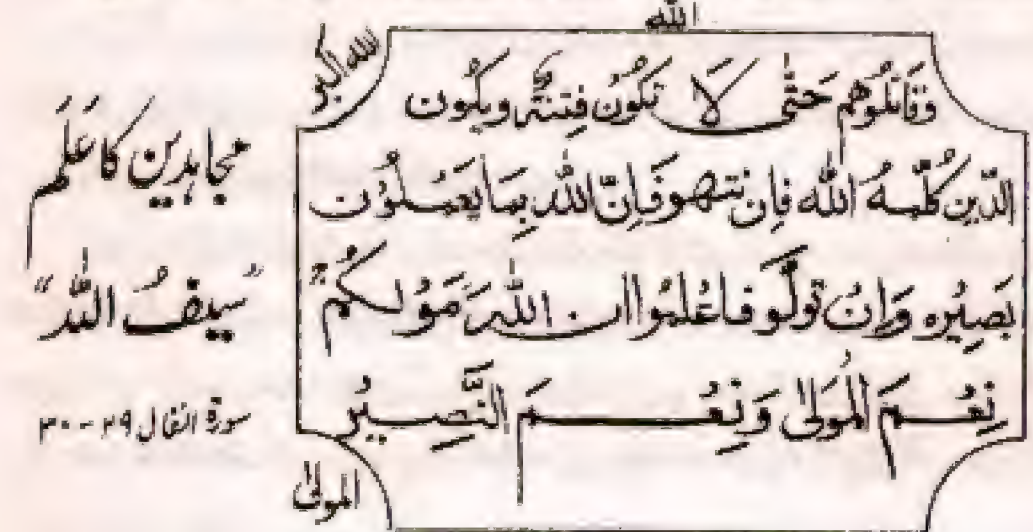 الله
لله اکبر
وَقَاتِلُوهُم حَتّٰى لَا تَكُونَ فِتنَةٌ وَيَكُون
الدِّين كُلّهُ الله فِان نتهوفَاِنَّ اللهَ بِمَا يَعمَلُوْن
بَصِيْره وَاِنْ تَوَلَّوفَاعْلَمُوْا ان اللهَ مَوْلٰكُمْ
نِعْمَ المَوْلٰى وَنِعْمَ النَّصِيْر
المولٰی
مجاہدین کا عَلَم
"سیفُ اللہ"
سورۃ انفال ۲۹-۳۰